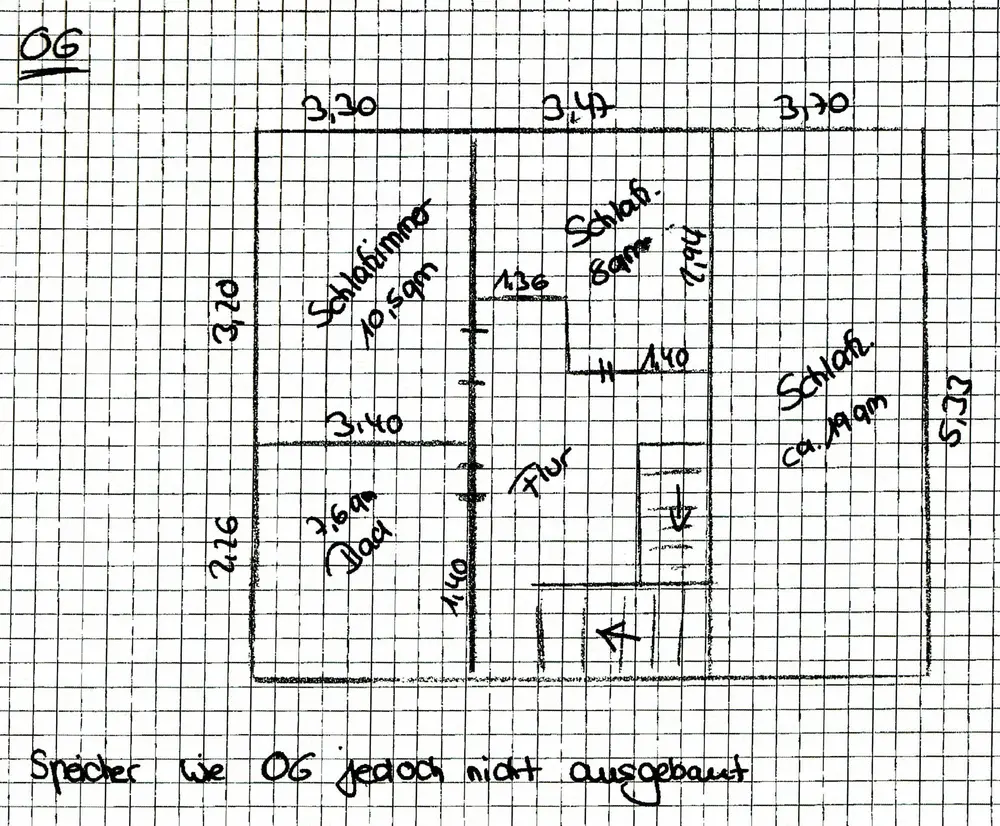 OG
3,30
3,47
3,70
Schlafzimmer
10,5qm
Schlafz.
8qm
1,36
3,20
1,40
Schlafz.
ca. 19 qm
5,33
3,40
Flur
7,6qm
Bad
2,26
1,40
Speicher wie OG jedoch nicht ausgebaut